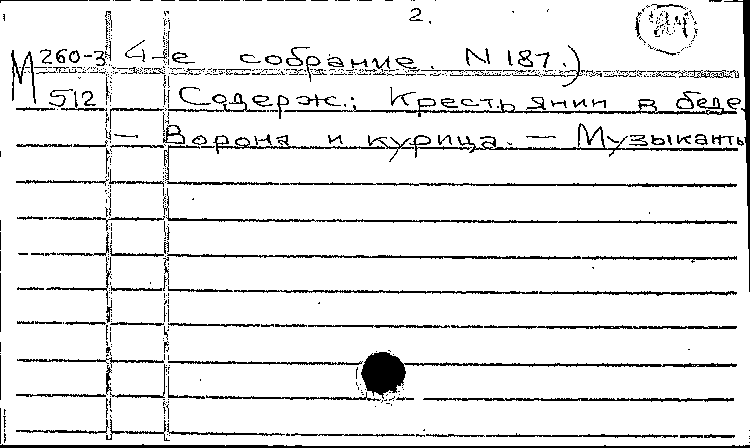 2.
М 260-3 4-е собрание. N 187.)
512 Содерж.: Крестьянин в беде
— Ворона и курица. — Музыканты